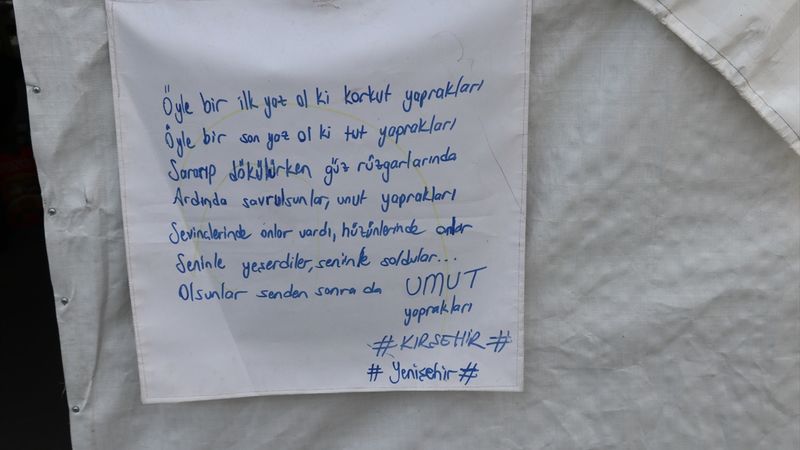 Öyle bir ilk yaz ol ki korkut yaprakları
Öyle bir son yaz ol ki tut yaprakları
Sararıp dökülürken güz rüzgarlarında
Ardında savrulsunlar, unut yaprakları
Sevinçlerinde onlar vardı, hüzünlerinde onlar
Seninle yeşerdiler, seninle soldular...
Olsunlar senden sonra da UMUT
yaprakları
#KIRŞEHİR#
#Yenişehir#